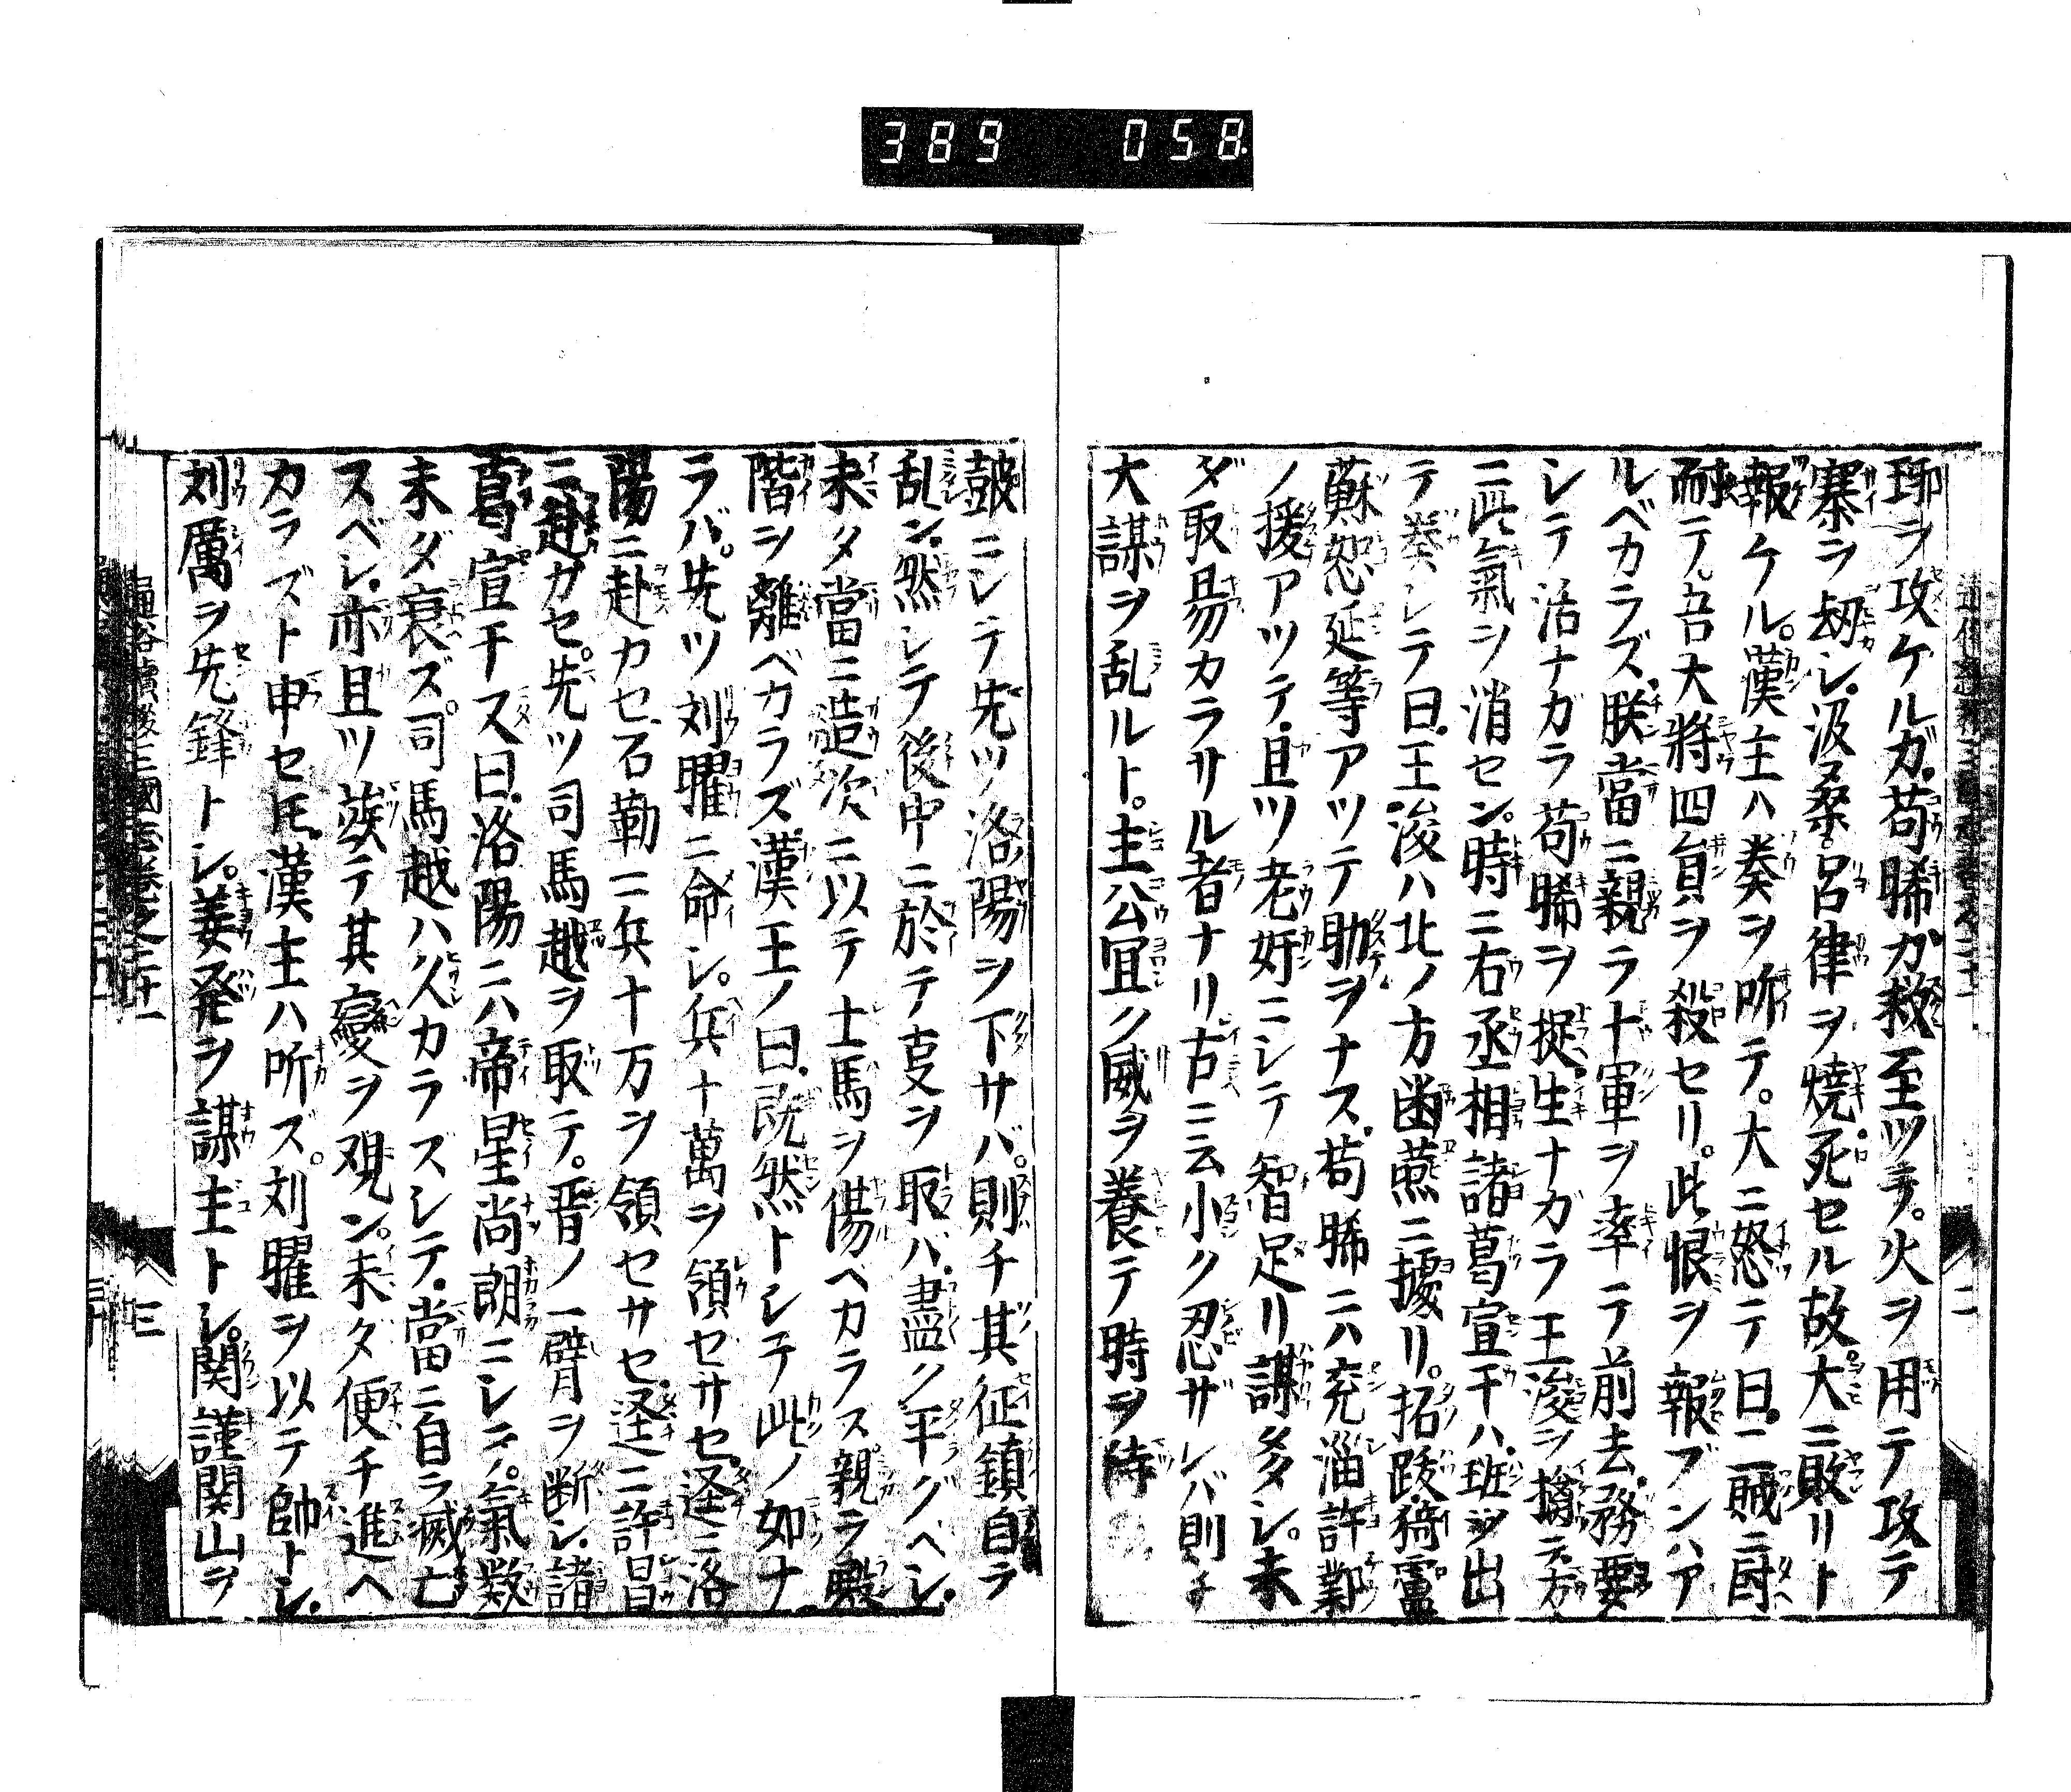 389 058
琊ヲ攻ケルガ。苟晞ガ救至ツテ。火ヲ用テ攻テ
寨ヲ刧シ。汲桑。呂律ヲ燒死セル故。大ニ敗リト
報ケル。漢主ハ奏ヲ听テ。大ニ怒テ曰。二賊ニ
耐テ。吾大將四員ヲ殺セリ。此恨ヲ報ズンハア
ルベカラズ。朕當ニ親ラ十軍ヲ率テ前去。務要
シテ活ナガラ苟晞ヲ捉。生ナガラ王浚ヲ擒ニ方
ニ此氣ヲ消セン。時ニ右丞相諸葛宣于ハ。班ヲ出
テ奏シテ曰。王浚ハ北ノ方幽燕ニ據リ。拓跋猗盧
蘇恕延等アツテ助ヲナス。苟晞ニハ兖淄許鄴
ノ援アツテ。且ツ老奸ニシテ智足リ謀多シ。未
ダ取易カラサル者ナリ古ニ云小ク忍ザレバ則チ
大謀ヲ乱ルト。主公冝ク威ヲ養テ時ヲ待
鼓ニシテ先ツ洛陽ヲ下サバ。則チ其征鎮自ラ
乱ン。然シテ後中ニ於テ㕝ヲ取バ。盡ク平グベシ。
未タ當ニ造次ニ以テ士馬ヲ傷ベカラス。親ラ輿
階ヲ離ベカラズ漢王ノ曰。既然トシテ此ノ如ナ
ラバ。先ツ刘曜ニ命シ。兵十萬ヲ領セサセ。逕ニ洛
陽ニ赴カセ。石勒ニ兵十万ヲ領セサセ。逕ニ許昌
ニ赴カセ。先ツ司馬越ヲ取テ。晋ノ一臂ヲ断ン。諸
葛宣于ス曰。洛陽ニハ帝星尚朗ニシテ。氣数
未ダ衰ズ。司馬越ハ久カラズシテ。當ニ自ラ滅亡
スベシ。亦且ツ竢テ其變ヲ覌ン。未ダ便チ進ベ
カラズト申セ𪜈。漢主ハ听ズ。刘曜ヲ以テ帥トシ。
刘厲ヲ先鋒トシ。姜発ヲ謀主トシ。関謹関山ヲ
通俗續後三國志卷之二十一
三